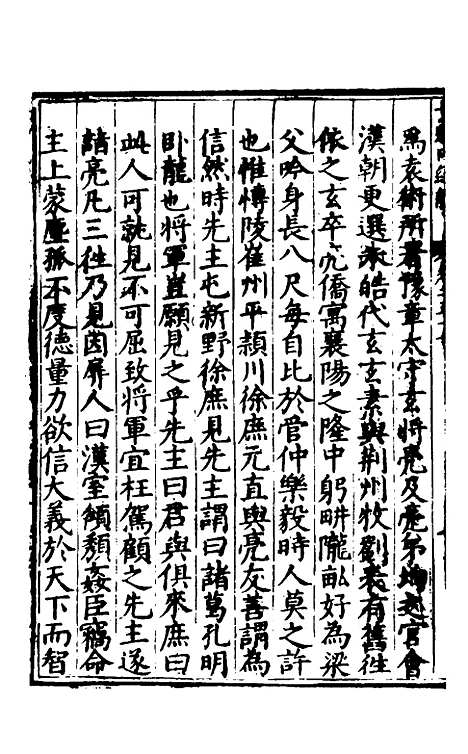 為袁術所署豫章太守玄將亮及亮弟均之官會
漢朝更選朱皓代玄玄素與荆州牧劉表有舊徃
依之玄卒亮僑寓襄陽之隆中躬畊隴畝好為梁
父吟身長八尺每自比於管仲樂毅時人莫之許
也惟博陵崔州平潁川徐庶元直與亮友善謂為
信然時先主屯新野徐庶見先主謂曰諸葛孔明
臥龍也將軍豈願見之乎先主曰君與俱來庶曰
此人可就見不可屈致將軍宜枉駕顧之先主遂
詣亮凡三徃乃見因屏人曰漢室傾頹姦臣竊命
主上蒙塵孤不度德量力欲信大義於天下而智